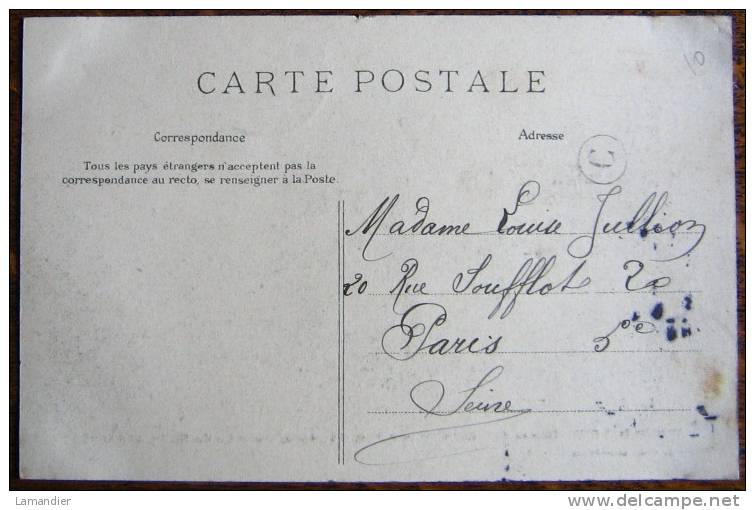 10
CARTE POSTALE
Correspondance
Adresse
C
Tous les pays étrangers n'acceptent pas la
correspondance au recto, se renseigner à la Poste.
Madame Louise Jullion
20 Rue Soufflot 20
Paris 5e
Seine
Lamandier
delcampe.net